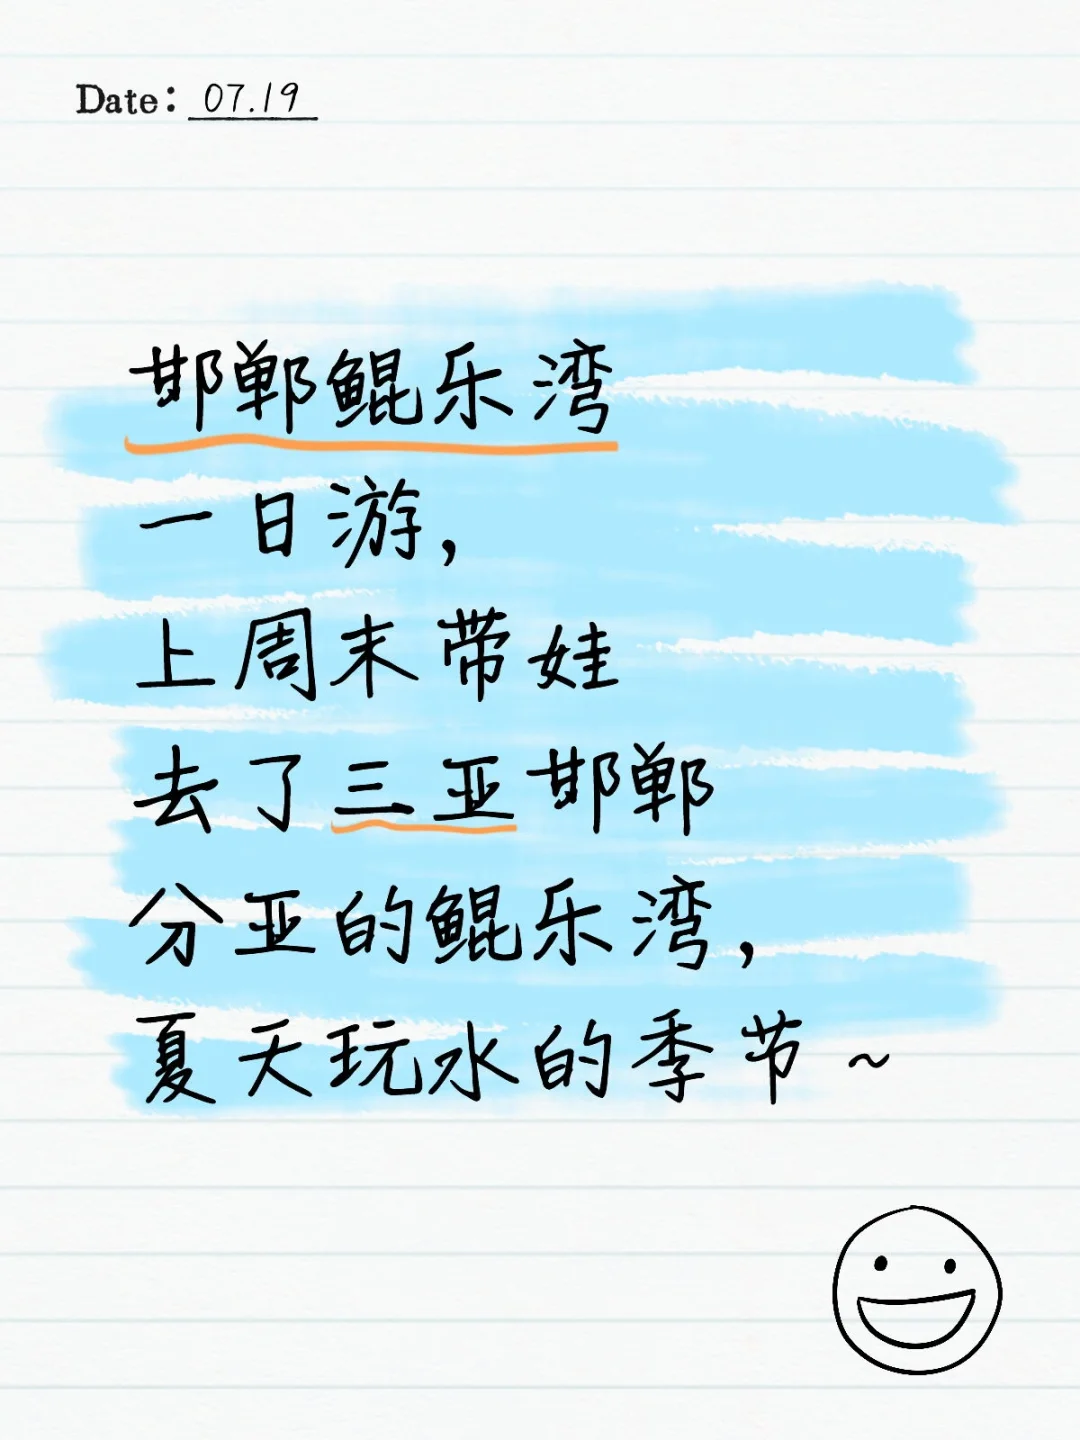 Date: 07.19
邯郸鲲乐湾
一日游，
上周末带娃
去了三亚邯郸
分亚的鲲乐湾，
夏天玩水的季节~